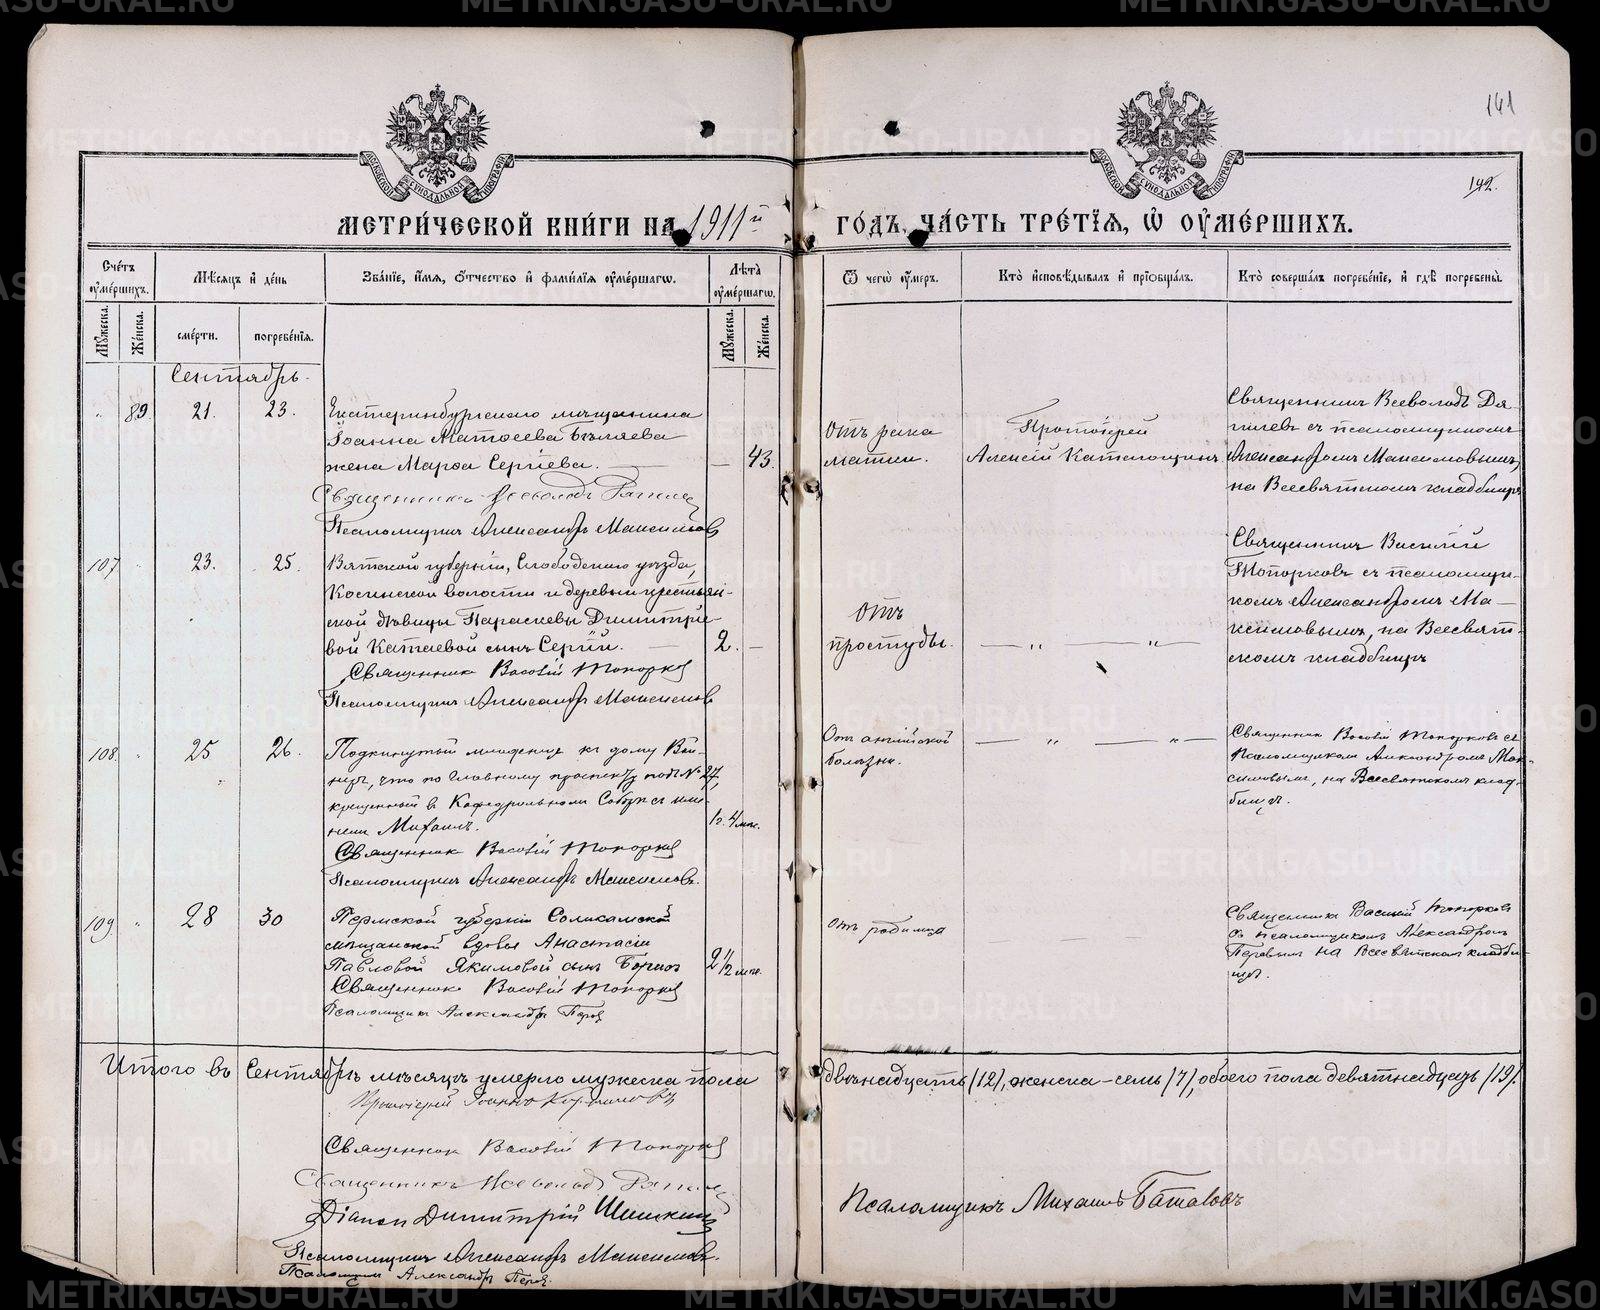 141
142.
МЕТРИ́ЧЕСКОЙ КНИ́ГИ НА 1911й ГО́ДЪ, ЧА́СТЬ ТРЕ́ТІѦ, Ѡ҆ ОУ҆МЕ́РШИХЪ.
Сче́тъ оу҆ме́ршихъ.
Мѣ́сяцъ и҆ де́нь
Зва́ніе, и҆́мя, ѻ҆́тчество и҆ фами́лія оу҆ме́ршагѡ.
Лѣ́та оу҆ме́ршагѡ.
Ѿ чегѡ̀ оу҆́меръ.
Кто̀ и҆сповѣ́дывалъ и҆ прїѡбща́лъ.
Кто̀ соверша́лъ погребе́ніе, и҆ гдѣ̀ погребены̀.
Му́жеска.
Же́нска.
сме́рти.
погребе́нія.
Му́жеска.
Же́нска.
Сентябрь.
89. 21. 23.
Екатеринбургскаго мѣщанина
Іоанна Матѳеева Бѣляева
жена Марѳа Сергіева. — — 43.
Священникъ Всеволодъ
Псаломщикъ Александръ Максимовъ
Отъ рака
матки.
Протоіерей
Алексій
Священникъ Всеволодъ Дя-
гилевъ съ псаломщикомъ
Александромъ Максимовымъ,
на Всесвятскомъ кладбищѣ
107 23. 25.
Вятской губерніи, Слободского уѣзда,
Косинской волости и деревни крестьян-
ской дѣвицы Параскевы Димитріе-
вой Катаевой сынъ Сергій. — 2. —
Священникъ Василій Топорковъ
Псаломщикъ Александръ Максимовъ
Отъ
простуды.
— „ — „ —
Священникъ Василій
Топорковъ съ псаломщи-
комъ Александромъ Ма-
ксимовымъ, на Всесвят-
скомъ кладбищѣ
108. 25 26.
Подкинутый младенецъ къ дому
что по Главному проспекту подъ № 27,
крещенный въ Кафедральномъ Соборѣ съ име-
немъ Михаилъ. 1 г. 4 мѣс.
Священникъ Василій Топорковъ
Псаломщикъ Александръ Максимовъ.
Отъ англійской
болѣзни.
— „ — „ —
Священникъ Василій Топорковъ съ
Псаломщикомъ Александромъ Мак-
симовымъ, на Всесвятскомъ клад-
бищѣ.
109 28 30
Пермской губерніи Соликамской
мѣщанской вдовы Анастасіи
Павловой Якимовой сынъ Борисъ 2 1/2 мѣс.
Священникъ Василій Топорковъ
Псаломщикъ Александръ Перов
Отъ родимца
Священникъ Василій Топорковъ
съ псаломщикомъ Александромъ
Перовымъ на Всесвятскомъ кладби-
щѣ.
Итого въ Сентябрѣ мѣсяцѣ умерло мужеска пола двѣнадцать /12/, женска - семь /7/, обоего пола девятнадцать /19/.
Протоіерей Іоаннъ
Священникъ Василій Топорковъ
Священникъ Всеволодъ
Діаконъ Димитрій Шишкинъ
Псаломщикъ Александръ Максимовъ.
Псаломщикъ Александръ Перов.
Псаломщикъ Михаилъ Баталовъ
METRIKI.GASO-URAL.RU